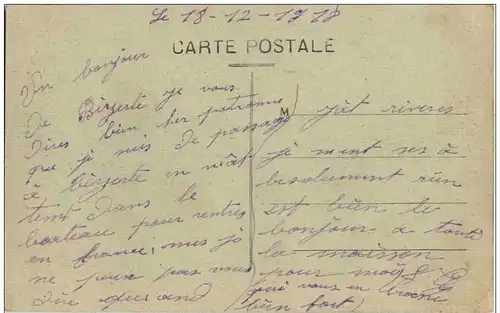 Le 18-12-1918
CARTE POSTALE
Un bonjour
de Bizzerte je vous
dires bien cher patronne
que je suis de passage
à Bizzerte en
tent dans le
bateau pour rentres
en france, mes je
ne peux pas vous
dire quand
M
je ment ses à
besoluement rien
est bien le
bonjour a toute
la maison
pour moy
qui vous en
bien fort